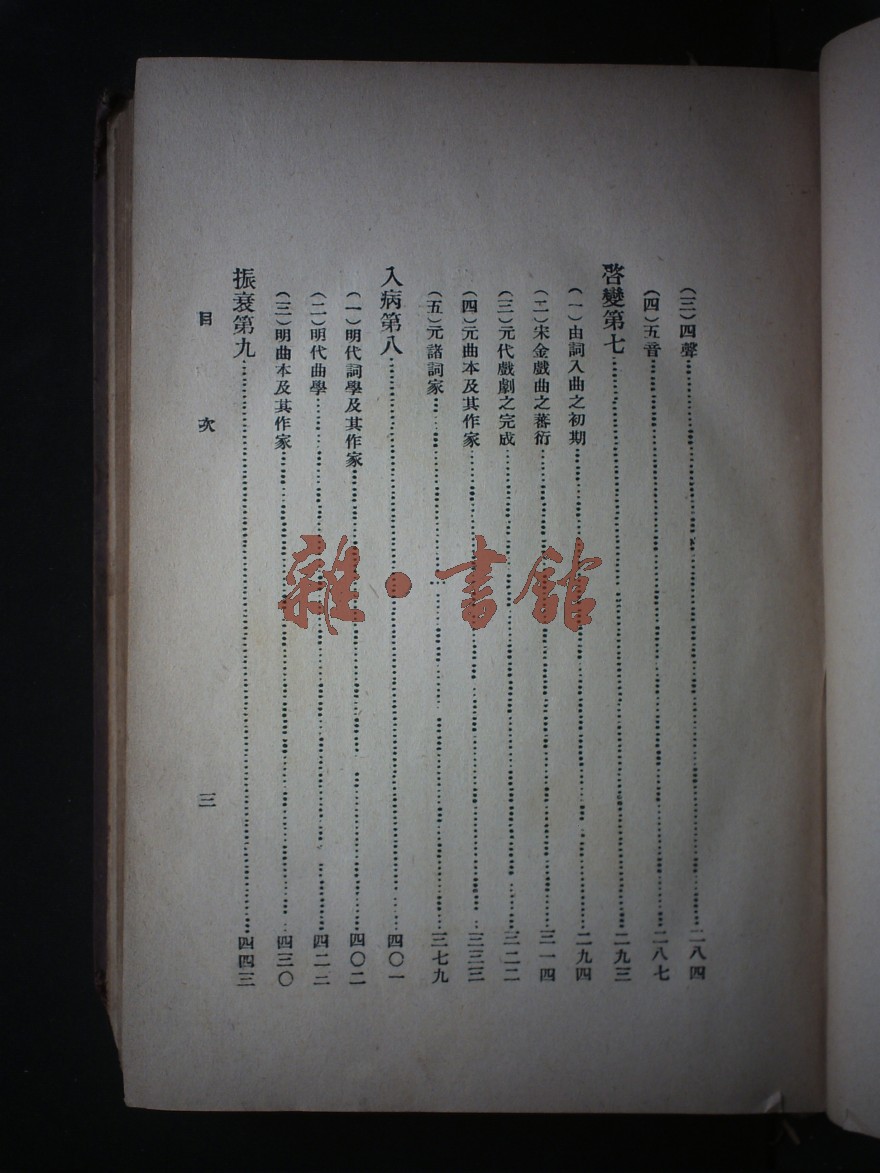 (三)四聲……二八四
(四)五音……二八七
啓變第七……二九三
(一)由詞入曲之初期……二九四
(二)宋金戲曲之蕃衍……三一四
(三)元代戲劇之完成……三二二
(四)元曲本及其作家……三三三
(五)元諸詞家……三七九
入病第八……四〇一
(一)明代詞學及其作家……四〇二
(二)明代曲學……四二二
(三)明曲本及其作家……四三〇
振衰第九……四四三
目次
三
雜·書館